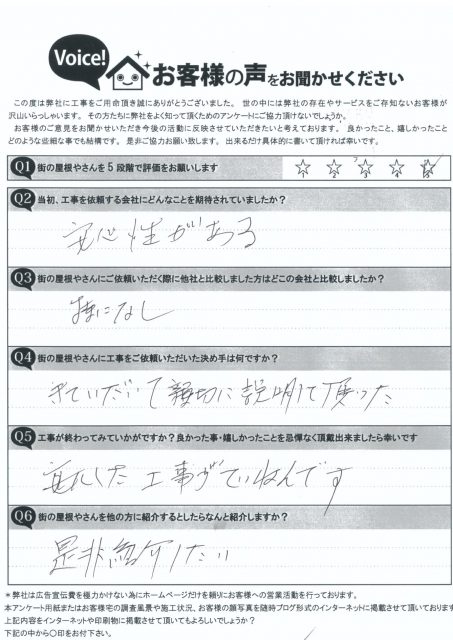 Voice!
お客様の声をお聞かせください
この度は弊社に工事をご用命頂き誠にありがとうございました。 世の中には弊社の存在やサービスをご存知ないお客様が
沢山いらっしゃいます。 その方たちに弊社をよく知って頂くためのアンケートにご協力頂けないでしょうか。
お客様のご意見をお聞かせいただき今後の活動に反映させていただきたいと考えております。 良かったこと、嬉しかったこと
どのような些細な事でも結構です。 是非ご協力お願い致します。 出来るだけ具体的に書いて頂ければ幸いです。
Q1 街の屋根やさんを5段階で評価をお願いします
1 2 3 4 5
Q2 当初、工事を依頼する会社にどんなことを期待されていましたか?
安心性がある
Q3 街の屋根やさんにご依頼いただく際に他社と比較しました方はどこの会社と比較しましたか?
特になし
Q4 街の屋根やさんに工事をご依頼いただいた決め手は何ですか?
きていただいて親切に説明して頂った
Q5 工事が終わってみていかがですか?良かった事・嬉しかったことを忌憚なく頂戴出来ましたら幸いです
した工事がていねんです
Q6 街の屋根やさんを他の方に紹介するとしたらなんと紹介しますか?
是非紹介したい
＊弊社は広告宣伝費を極力かけない為にホームページだけを頼りにお客様への営業活動を行っております。
本アンケート用紙またはお客様宅の調査風景や施工状況、お客様の顔写真を随時ブログ形式のインターネットに掲載させて頂いております
上記内容をインターネットや印刷物に掲載させて頂いてもよろしいでしょうか?
下記の中から〇印をお付け下さい。